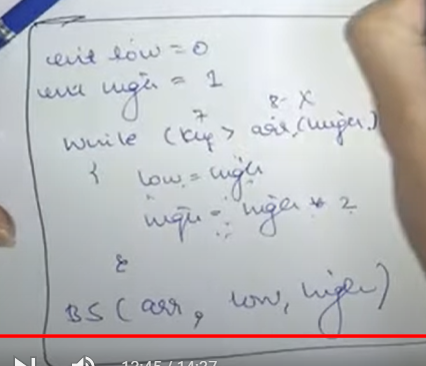 int low = 0
int high = 1
7 8- X
while (key > arr.(high.)
{ low = high
high = high * 2
}
BS (arr, low, high)
12:45 / 14:27